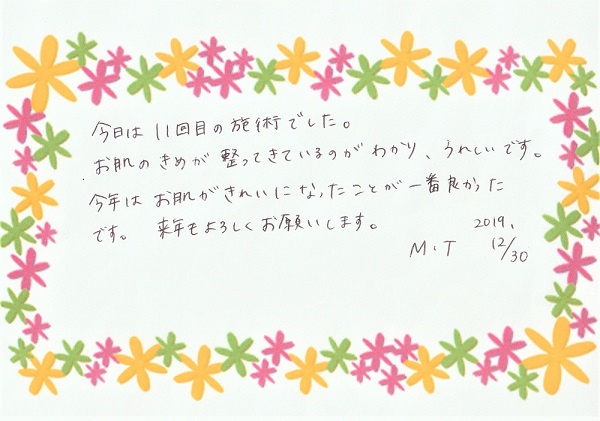 今日は11回目の施術でした。
お肌のきめが整ってきているのがわかり、うれしいです。
今年はお肌がきれいになったことが一番良かった
です。 来年もよろしくお願いします。
2019.
M.T 12/30